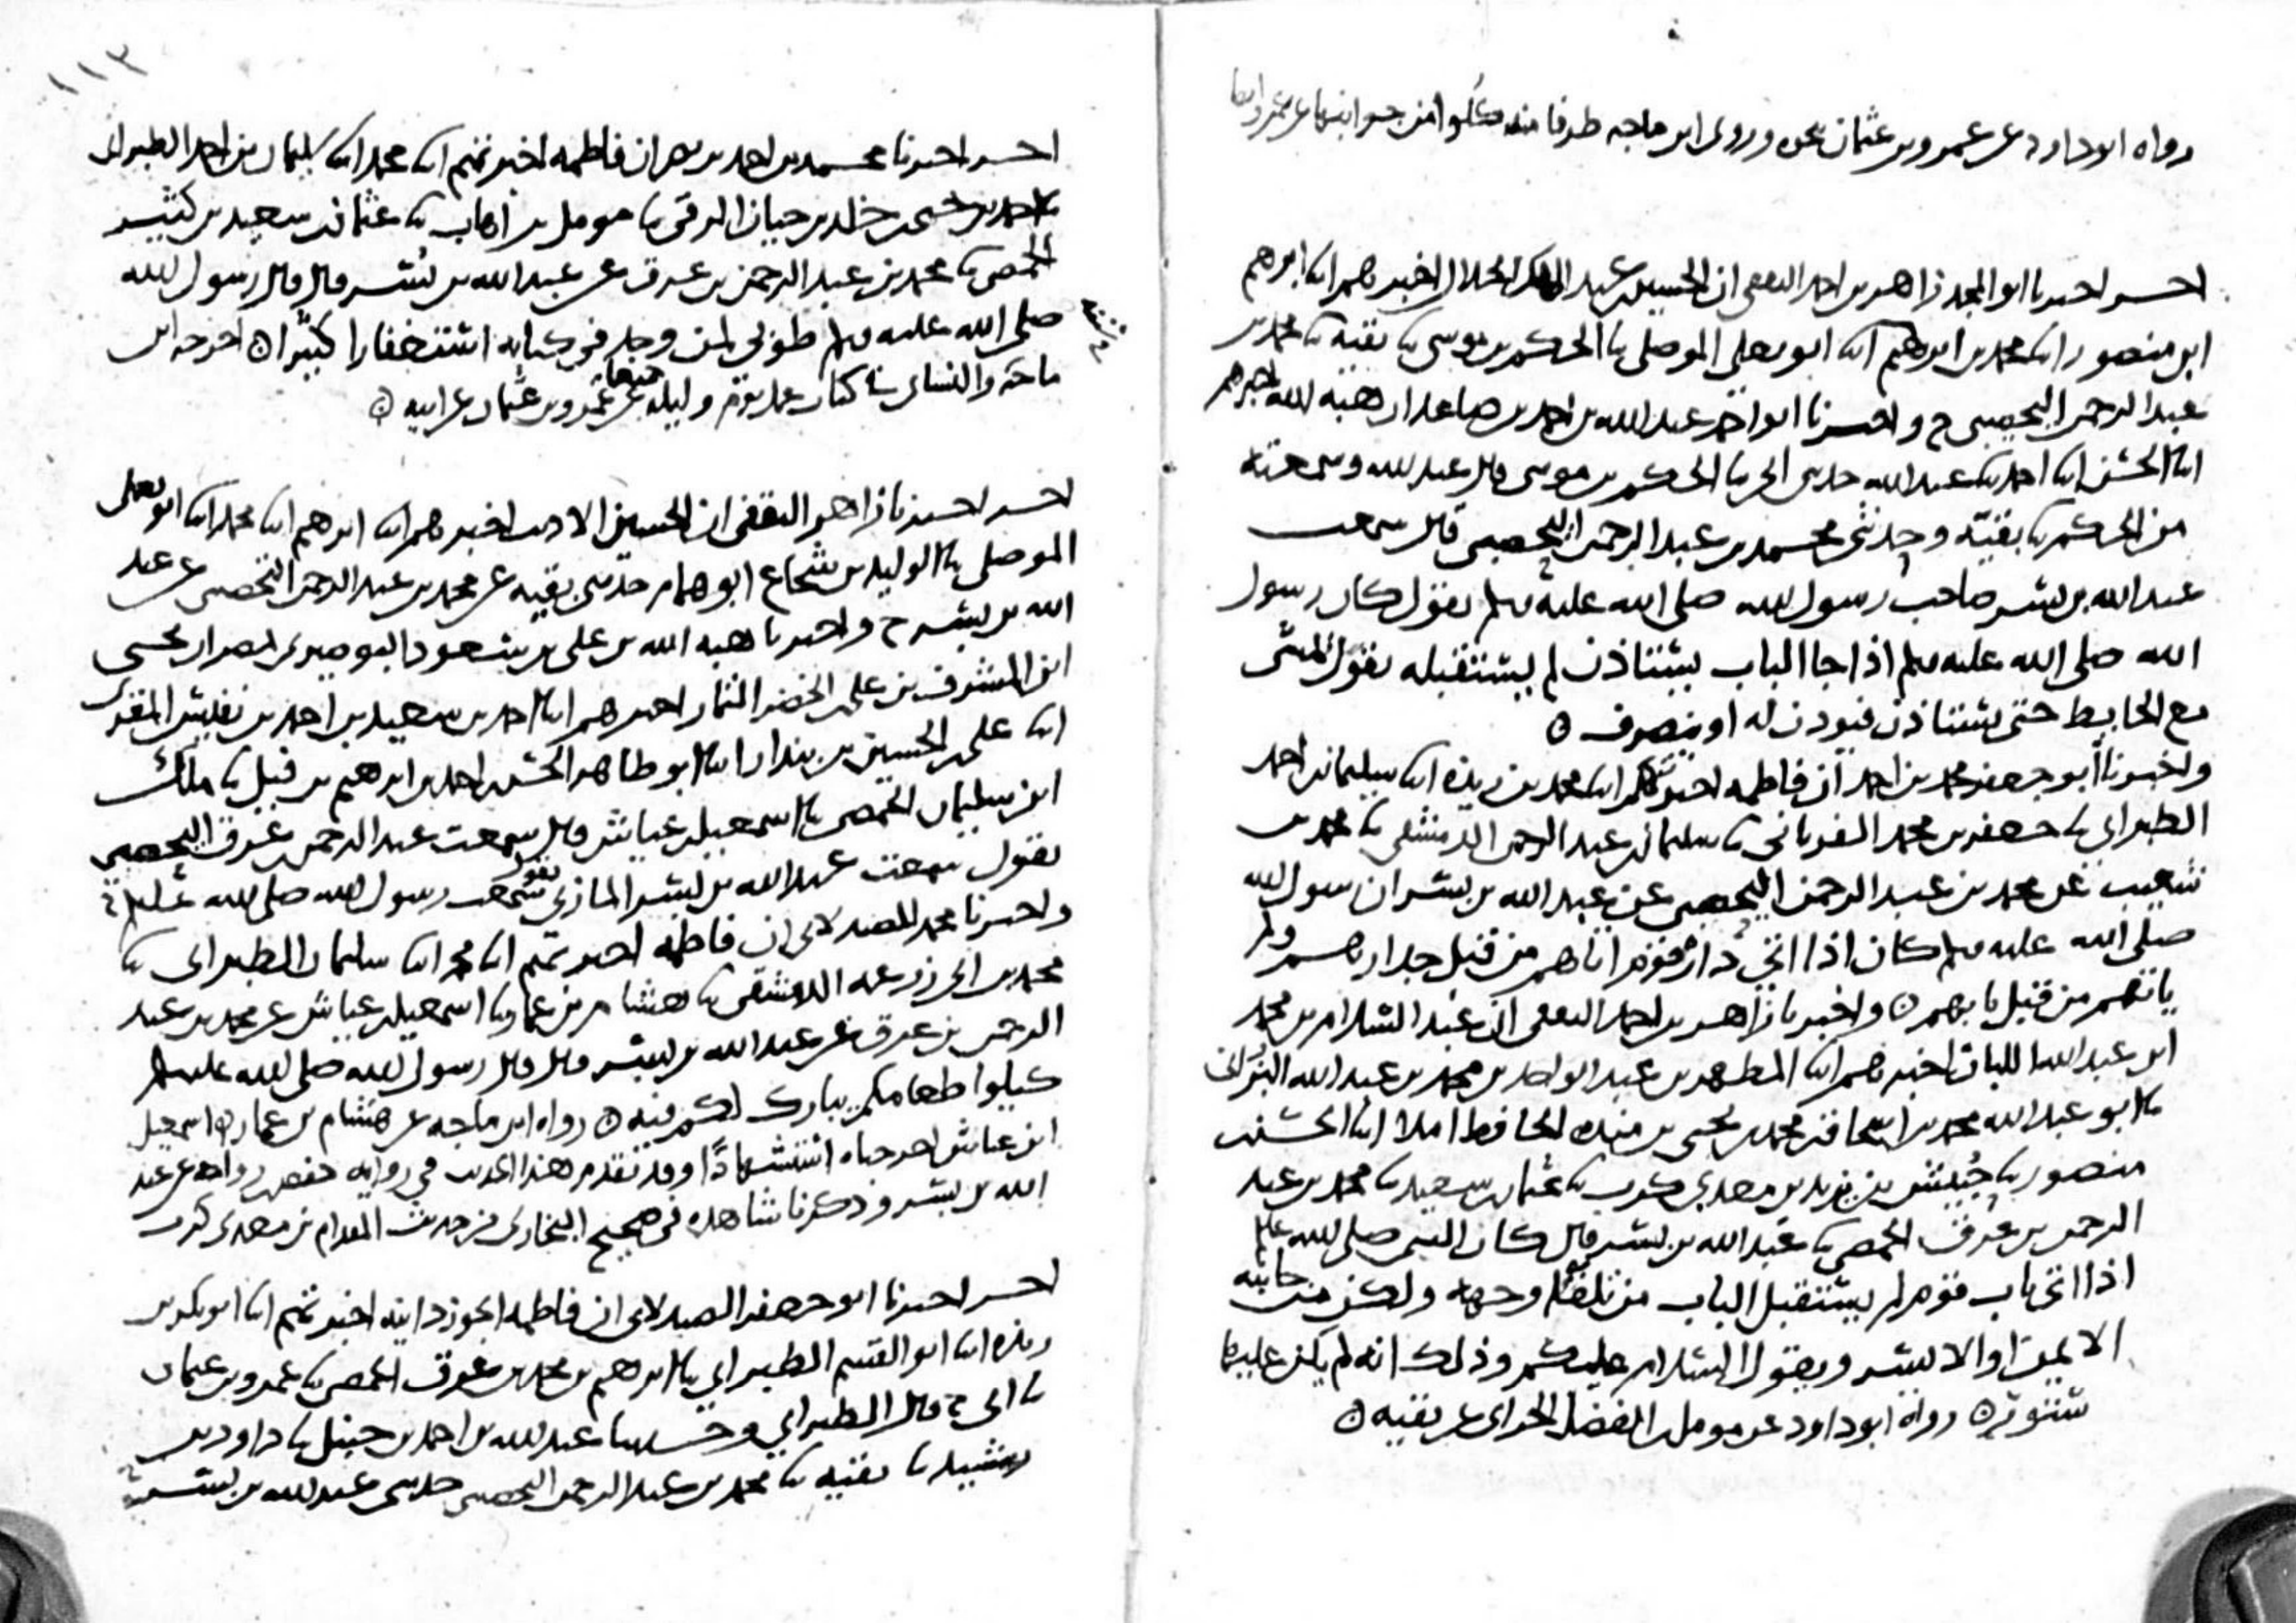 رواه ابو داود عن عمرو بن عثمان نحوه وروى ابن ماجه طرفا منه كلوا من جوانبها عن عمرو ايضا
اخبرنا ابو المجد زاهر بن احمد الثقفي ان الحسين بن عبد الملك الخلال اخبرهم ابنا ابرهيم
ابن منصور ابنا محمد بن ابرهيم ابنا ابو يعلى الموصلي ثنا الحكم بن موسى ثنا بقية ثنا محمد بن
عبد الرحمن اليحصبي ح واخبرنا ابو احمد عبد الله بن احمد بن صاعد ان هبة الله اخبرهم
ابنا الحسن ابنا احمد ثنا عبد الله حدثني ابي ثنا الحكم بن موسى قال عبد الله وسمعته
من الحكم ثنا بقية وحدثني محمد بن عبد الرحمن اليحصبي قال سمعت
عبد الله بن بسر صاحب رسول الله صلى الله عليه وسلم يقول كان رسول
الله صلى الله عليه وسلم اذا جا الباب يستاذن لم يستقبله يقول يمشي
مع الحايط حتى يستاذن فيوذن له او ينصرف ه
واخبرنا ابو جعفر محمد بن احمد ان فاطمه اخبرتهم ابنا محمد بن ريذه ابنا سليمان بن احمد
الطبراني ثنا جعفر بن محمد الفريابي ثنا سليمان بن عبد الرحمن الدمشقي ثنا محمد بن
شعيب عن محمد بن عبد الرحمن اليحصبي عن عبد الله بن بسر ان رسول الله
صلى الله عليه وسلم كان اذا اتى دار قوم اتاهم من قبل جدارهم ولم
ياتهم من قبل بابهم ه واخبرنا زاهر بن احمد الثقفي ان عبد السلام بن محمد
ابن عبد الله اللبان اخبرهم ابنا المطهر بن عبد الواحد بن محمد بن عبد الله البزاني
ثنا ابو عبد الله محمد بن اسحاق بن محمد بن يحيى بن منده الحافظ املا ابنا الحسن بن
منصور ثنا بن يزيد بن معدي كرب ثنا عثمان بن سعيد ثنا محمد بن عبد
الرحمن بن عرق الحمصي ثنا عبد الله بن بسر قال كان النبي صلى الله عليه
اذا اتى باب قوم لم يستقبل الباب من تلقا وجهه ولكن من جانبه
الايمن او الايسر ويقول السلام عليكم وذلك انه لم يكن عليها
ستور ه رواه ابو داود عن مومل بن الفضل الحراني عن بقيه ه
١١٣
اخبرنا محمد بن احمد بن نصر ان فاطمه اخبرتهم ابنا محمد ابنا سليمان بن احمد الطبراني
ثنا احمد بن خلد بن حيان الرقي ثنا مومل بن اهاب ثنا عثمان بن سعيد بن كثير
الحمصي ثنا محمد بن عبد الرحمن بن عرق عن عبد الله بن بسر قال قال رسول الله
صلى الله عليه وسلم طوبى لمن وجد في كتابه استغفارا كثيرا ه اخرجه ابن
ماجه والنسائي كتاب عمل يوم وليله جميعا عن عمرو بن عثمان عن ابيه ه
اخبرنا زاهر الثقفي ان الحسين الاديب اخبرهم ابنا ابرهيم ابنا محمد ابنا ابو يعلى
الموصلي ثنا الوليد بن شجاع ابو همام حدثني بقيه عن محمد بن عبد الرحمن اليحصبي عن عبد
الله بن بسر ح واخبرنا هبه الله بن علي بن مسعود البوصيري بمصر ان يحيى
ابن المشرف بن علي بن الخضر التمار اخبرهم ابنا احمد بن سعيد بن احمد بن نفيس المقري
ابنا علي بن الحسين بن بندار ابنا ابو طاهر الحسن بن احمد بن ابرهيم بن فيل ثنا
ابن سليمان الحمصي ثنا اسمعيل بن عياش قال سمعت عبد الرحمن بن عرق اليحصبي
يقول سمعت عبد الله بن بسر المازني يقول سمعت رسول الله صلى الله عليه ح
واخبرنا محمد الصيدلاني ان فاطمه اخبرتهم ابنا محمد ابنا سليمان الطبراني ثنا
محمد بن ابي زرعه الدمشقي ثنا هشام بن عمار ثنا اسمعيل بن عياش عن محمد بن عبد
الرحمن بن عرق عن عبد الله بن بسر قال قال رسول الله صلى الله عليه وسلم
كيلوا طعامكم يبارك لكم فيه ه رواه ابن ماجه عن هشام بن عمار ه اسمعيل
ابن عياش اخرجناه استشهادا وقد تقدم هذا الحديث في روايه عن عبد
الله بن بسر وذكرنا شاهده في صحيح البخاري من حديث المقدام بن معدي كرب
اخبرنا ابو جعفر الصيدلاني ان فاطمه الجوزدانيه اخبرتهم ابنا ابو بكر بن
ريذه ابنا ابو القسم الطبراني ثنا ابرهيم بن محمد بن عرق الحمصي ثنا عمرو بن عثمان
ثنا ابي ح قال الطبراني وحدثنا عبد الله بن احمد بن حنبل ثنا داود بن
رشيد ثنا بقيه ثنا محمد بن عبد الرحمن اليحصبي حدثني عبد الله بن بسر